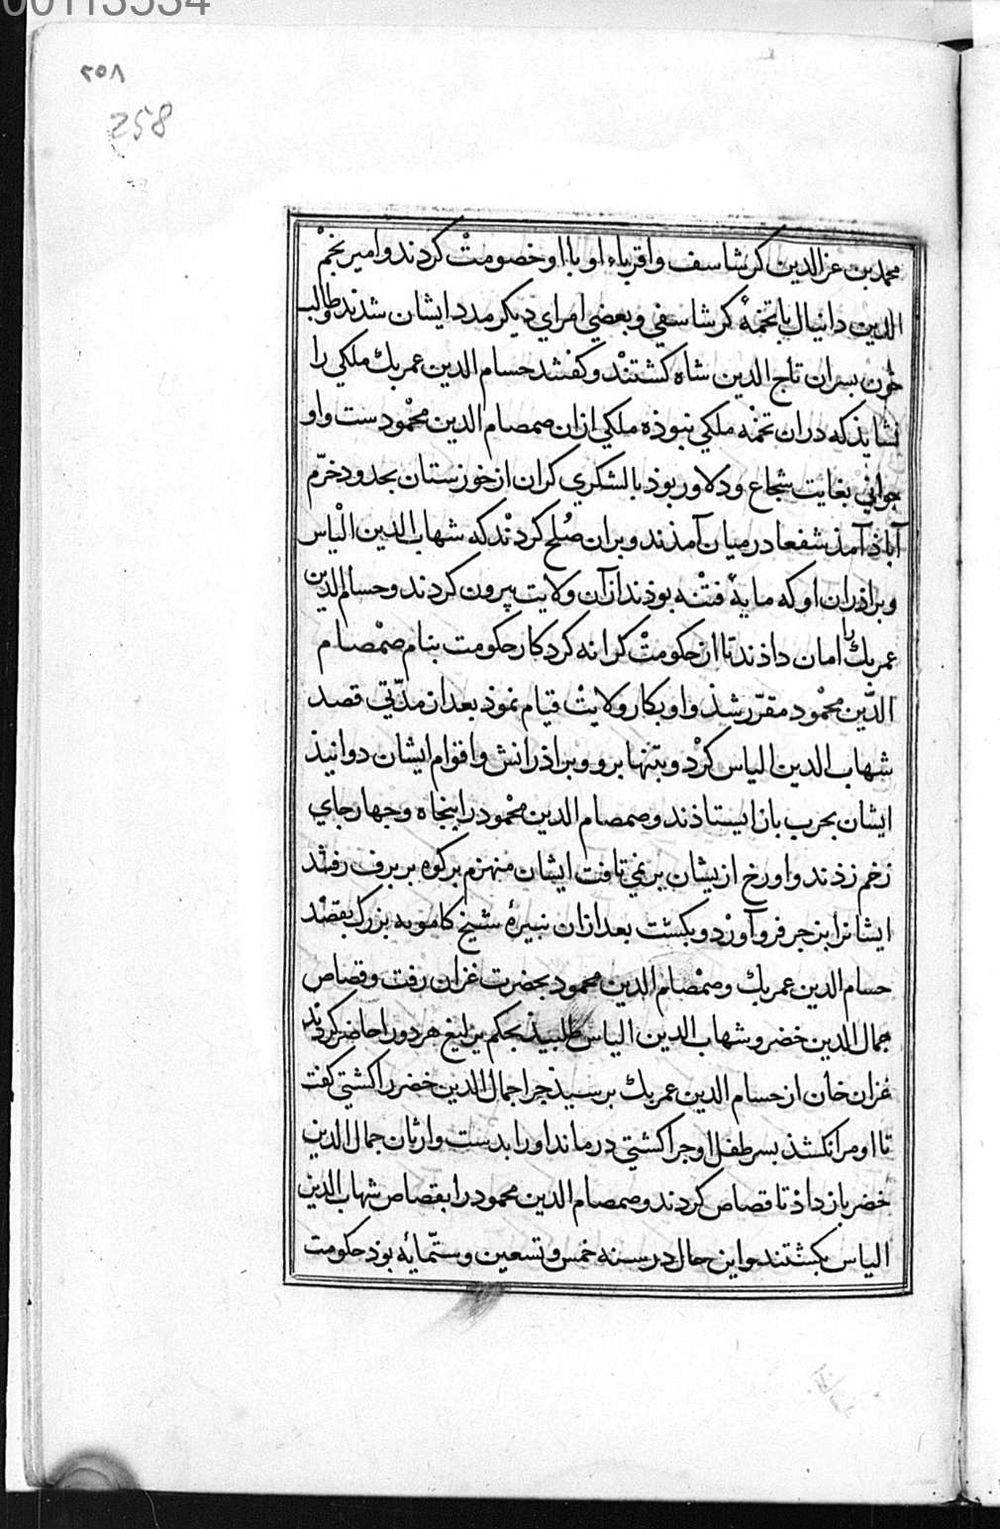 00113534
۲۵۸
258
محمد بن عز الدین کرشاسف و اقرباء او با او خصومت کردند و امیر نجم
الدین دانیال با تخمهٔ کرشاسفی و بعضی امرای دیکر مدد ایشان شدند و طالب
خون بسران تاج الدین شاه کشتند و کفتند حسام الدین عمر بک ملکی را
نشایذ که در ان تخمه ملکی نبوذه ملکی ازان صمصام الدین محمودست و او
جوانی بغایت شجاع و دلاور بوذ با لشکری کران از خوزستان بحدود خرّم
آباذ آمذ شفعا در میان آمذند و بران صُلح کردند که شهاب الدین الیاس
و براذران او که مایهٔ فتنه بوذند از آن ولایت بیرون کردند و حسام الدین
عمر بک را امان داذند تا از حکومت کرانه کرد کار حکومت بنام صمصام
الدّین محمود مقرّر شذ و او بکار ولایت قیام نموذ بعد از مدّتی قصد
شهاب الدین الیاس کرد و بتنها برو و براذرانش و اقوام ایشان دوانیذ
ایشان بحرب باز ایستاذند و صمصام الدین محمود را پنجاه و چهار جای
زخم زذند و او رخ ازیشان بر نمی تافت ایشان منهزم بر کوه بر برف رفتند
ایشانرا بزجر فرو آورد و بکشت بعد ازان نبیرهٔ شیخ کامویه بزرک بقصد
حسام الدین عمر بک و صمصام الدین محمود بحضرت غزان رفت و قصاص
جمال الدین خضر و شهاب الدین الیاس طلبیذ بحکم یرلیغ هر دو را حاضر کردند
غزان خان از حسام الدین عمر بک برسیذ چرا جمال الدین خضر را کشتی کفت
تا او مرا نکشذ بسر طفل او چرا کشتی درماند او را بدست وارثان جمال الدین
خضر باز داذ تا قصاص کردند و صمصام الدین محمود را بقصاص شهاب الدین
الیاس بکشتند و این حال در سنه خمس و تسعین و ستّمایه بوذ حکومت